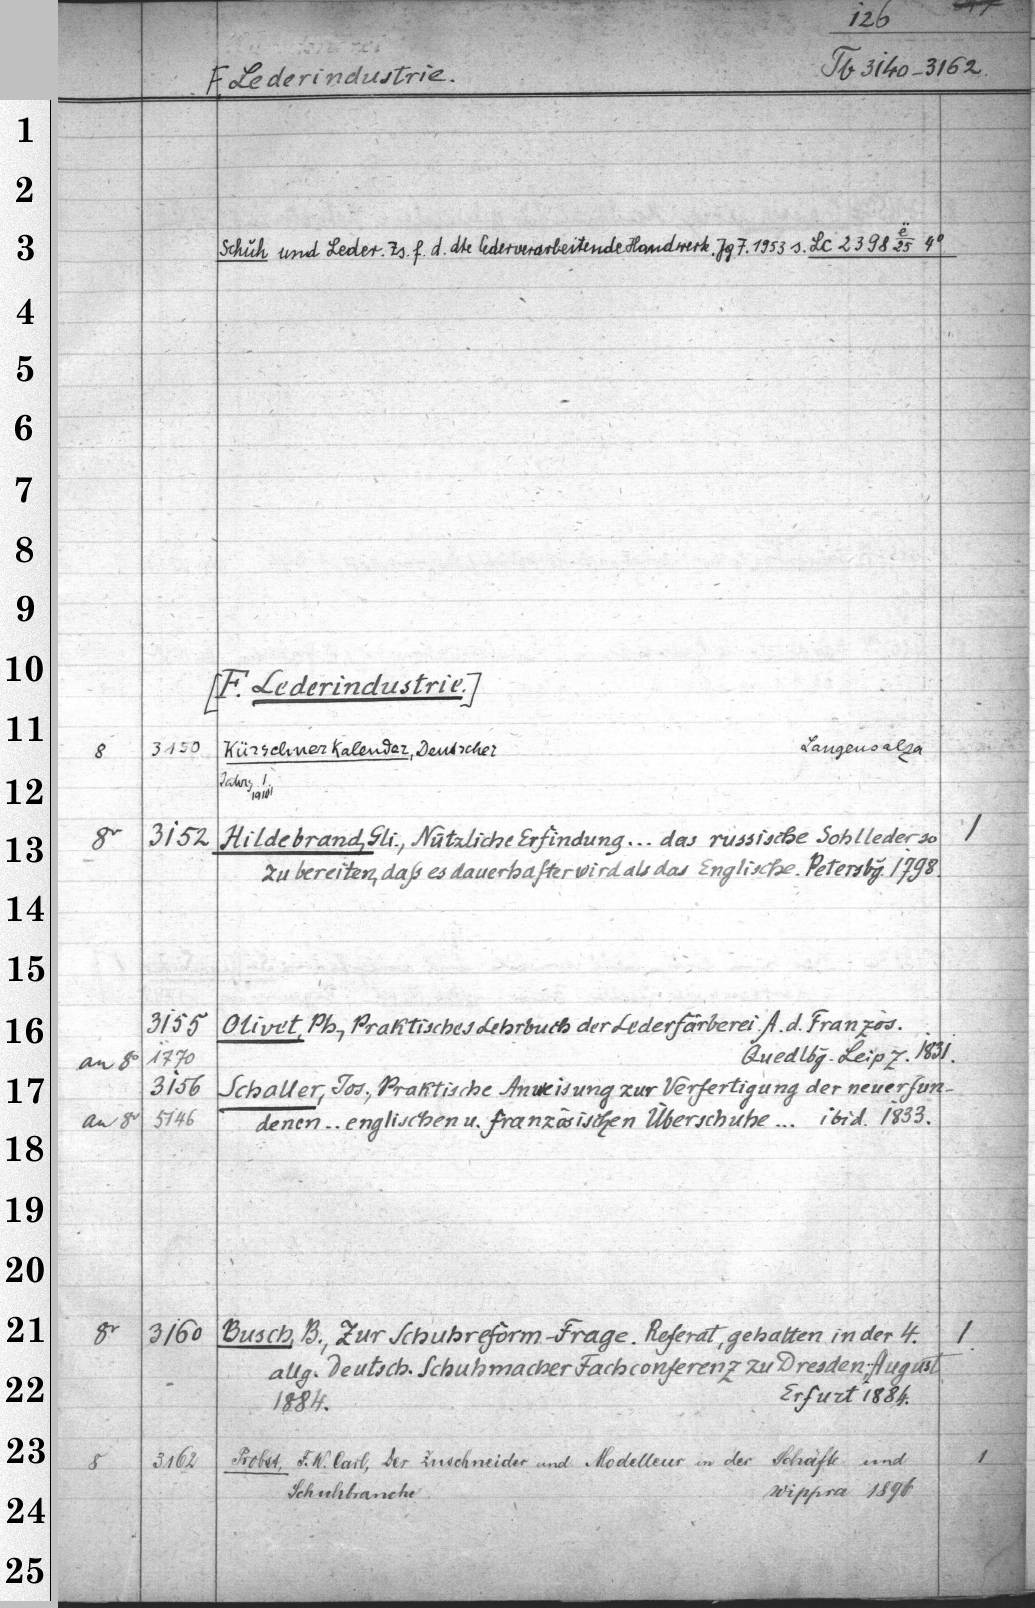 126
F. Lederindustrie.
Tb 3140-3162.
1
2
3 Schuh und Leder. Zs. f. d. dte lederverarbeitende Handwerk. Jg 7. 1953 s. Lc 2398 ë/25 4°
4
5
6
7
8
9
10 [F. Lederindustrie.]
11 8 3150 Kürschner Kalender, Deutscher Langensalza
12 Jahrg. 1. 1910
13 8r 3152 Hildebrand, Gli., Nützliche Erfindung... das russische Sohlleder so 1
zu bereiten, daß es dauerhafter wird als das Englische. Petersbg. 1798.
14
15
16 3155 Olivet, Ph., Praktisches Lehrbuch der Lederfärberei. A. d. Französ.
an 8° 1770 Quedlbg. Leipz. 1831.
17 3156 Schaller, Jos., Praktische Anweisung zur Verfertigung der neuerfun-
an 8r 5146 denen .. englischen u. französischen Überschuhe ... ibid. 1833.
18
19
20
21 8r 3160 Busch, B., Zur Schuhreform-Frage. Referat, gehalten in der 4. 1
allg. Deutsch. Schuhmacher Fachconferenz zu Dresden, August
22 1884. Erfurt 1884.
23 8 3162 Probst, F. W. Carl, Der Zuschneider und Modelleur in der Schäfte und 1
Schuhbranche. Wippra 1896
24
25